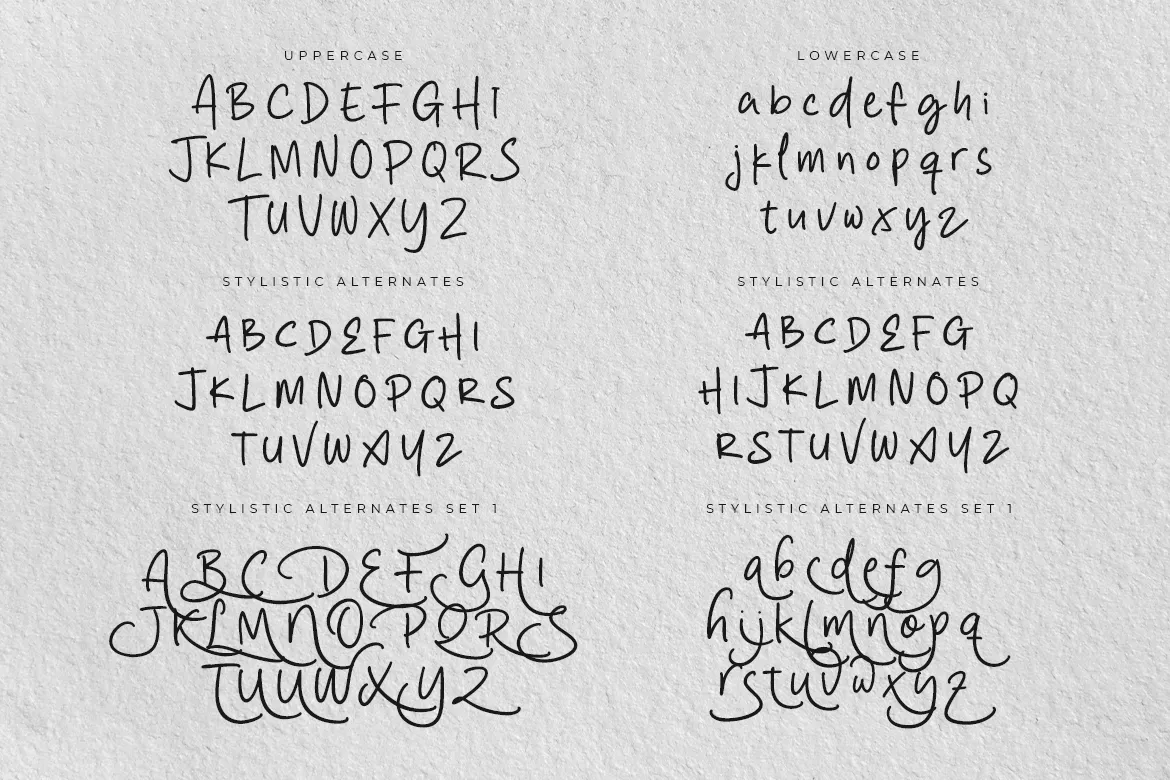 UPPERCASE
A B C D E F G H I
J K L M N O P Q R S
T U V W X Y Z
LOWERCASE
a b c d e f g h i
j k l m n o p q r s
t u v w x y z
STYLISTIC ALTERNATES
A B C D E F G H I
J K L M N O P Q R S
T U V W X Y Z
STYLISTIC ALTERNATES
A B C D E F G
H I J K L M N O P Q
R S T U V W X Y Z
STYLISTIC ALTERNATES SET 1
A B C D E F G H I
J K L M N O P Q R S
T U U W X Y Z
STYLISTIC ALTERNATES SET 1
a b c d e f g
h i j k l m n o p q
r s t u v w x y z